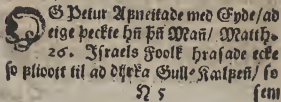 OG Petur Afneitade med Eyde/ad
eige þeckte hñ þñ Mañ/ Matth.
26. Jsraels Foolk hrasade ecke
so flioott til ad dyrka Gull-Kaalfeñ/ so
N 5 sem